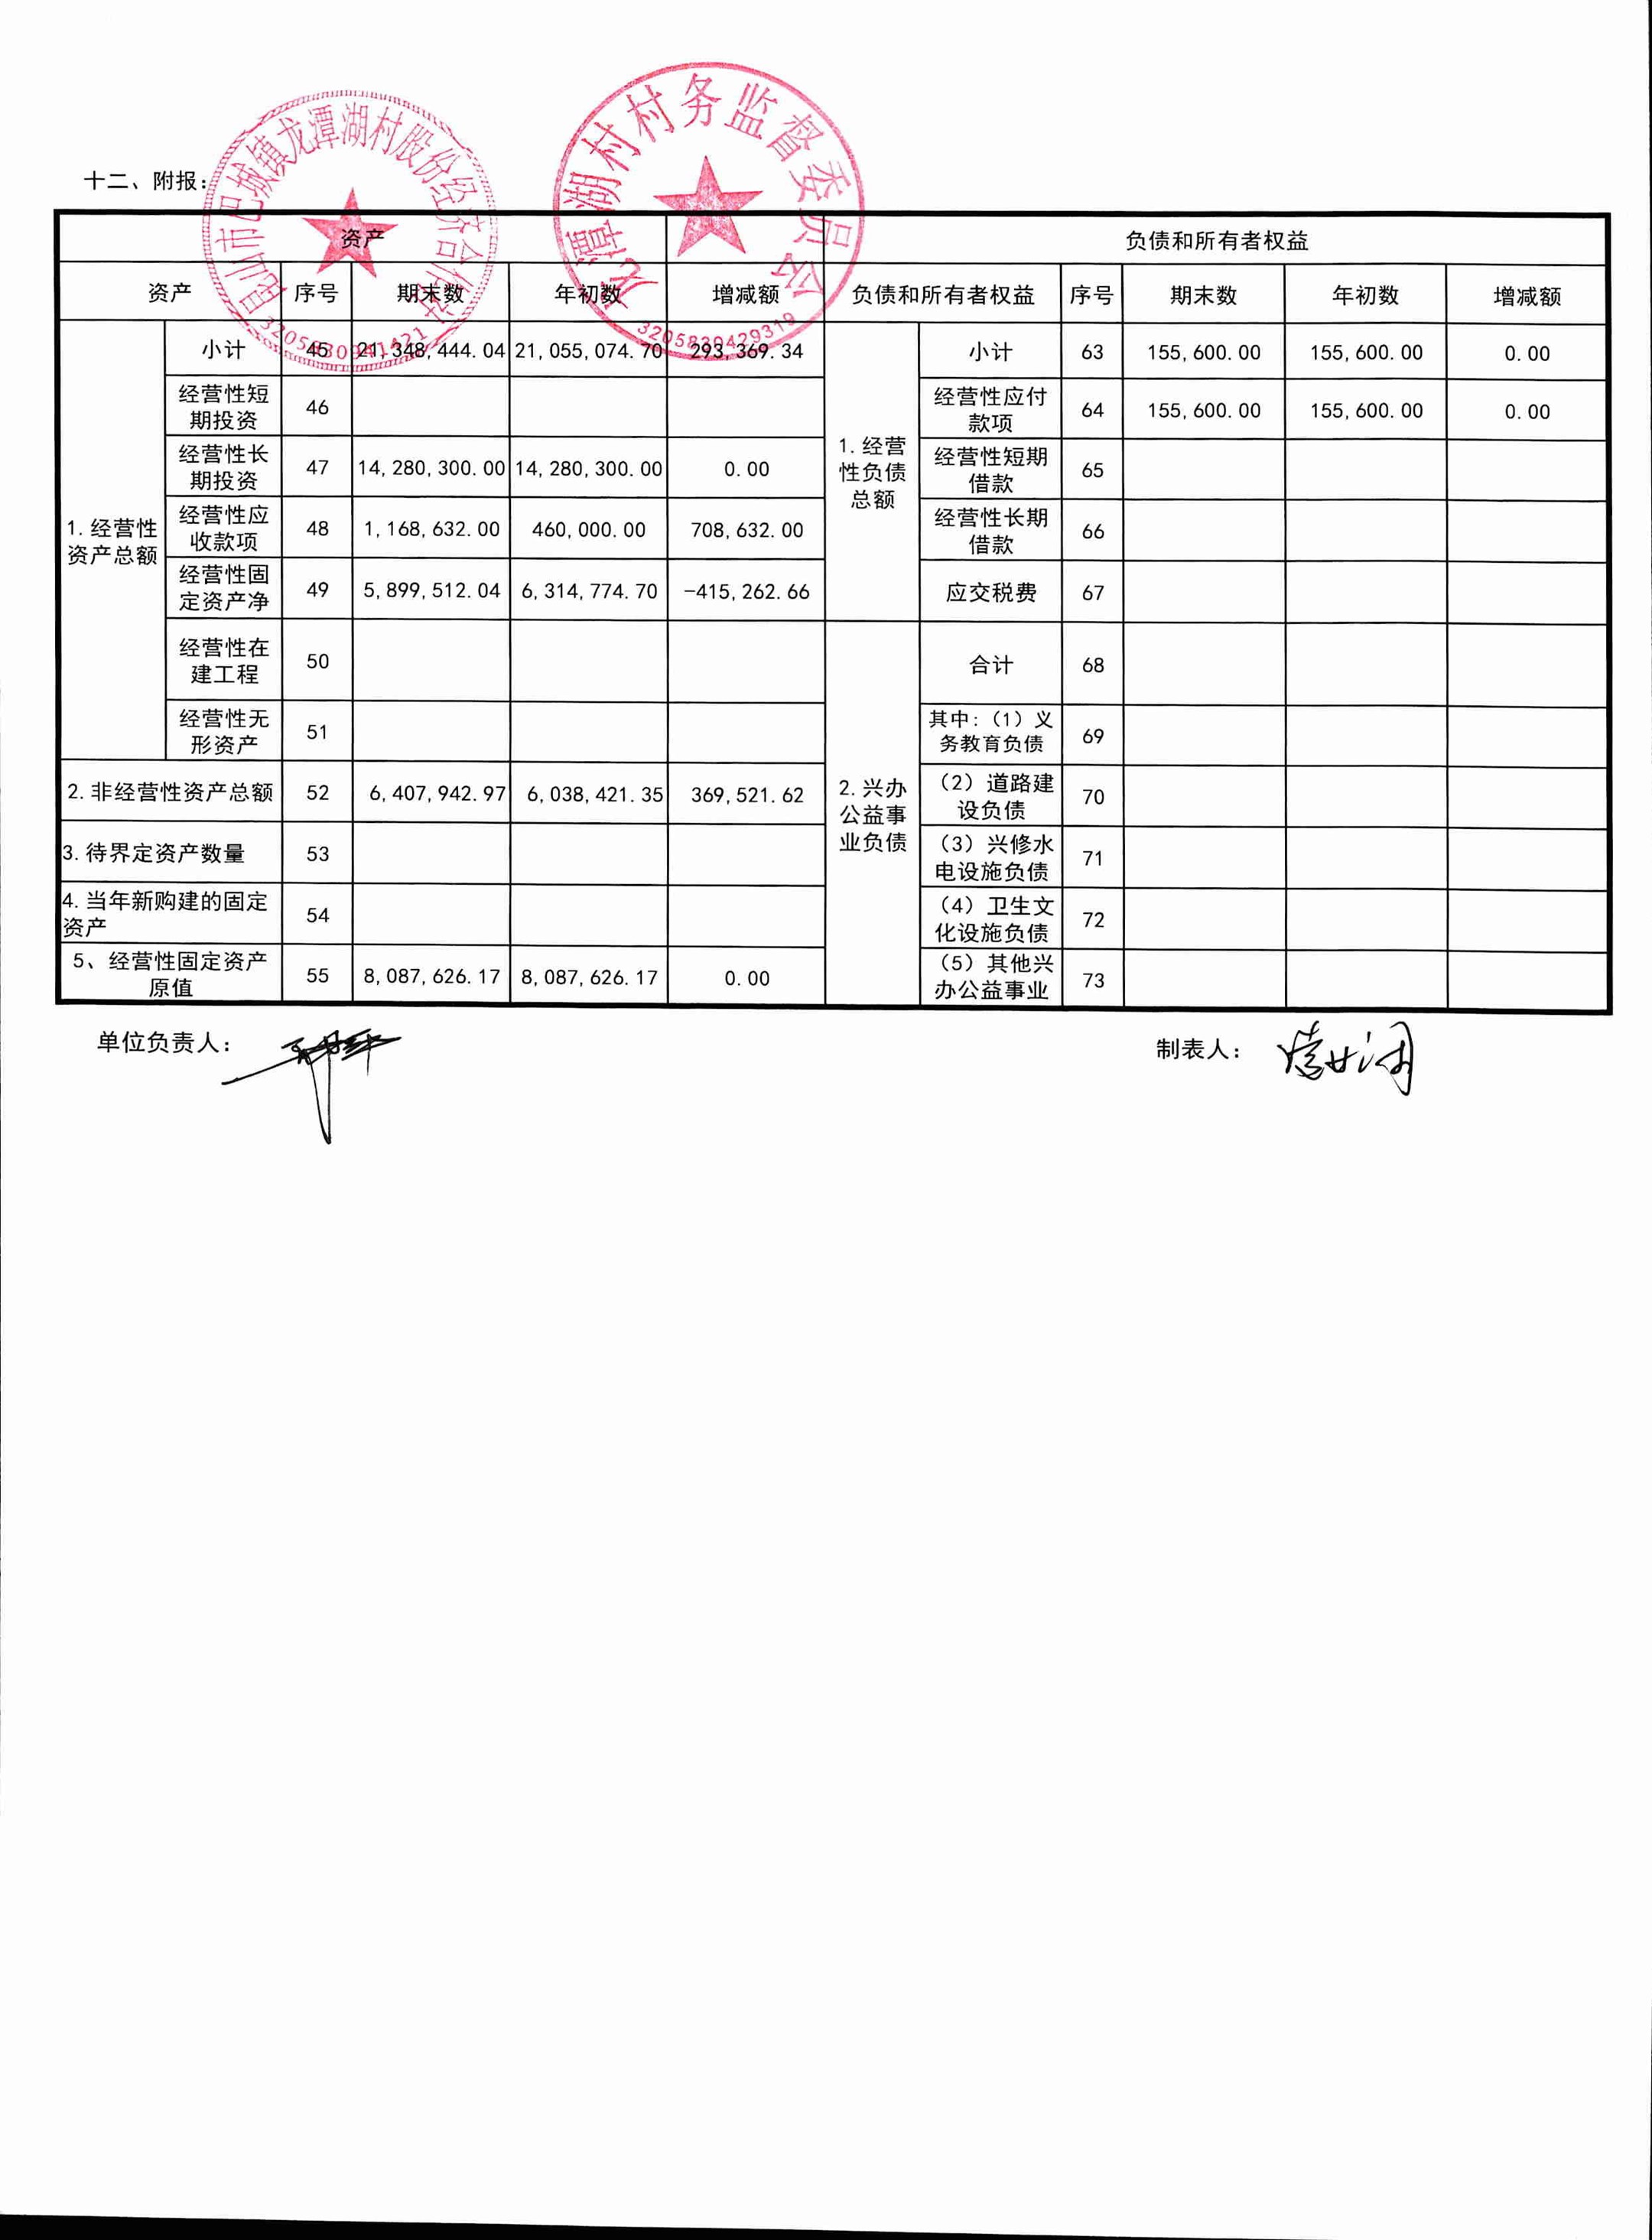 昆山市巴城镇龙潭湖村股份经济合作社
龙潭湖村村务监督委员会
3205830429319
十二、附报:
资产 负债和所有者权益
资产 序号 期末数 年初数 增减额 负债和所有者权益 序号 期末数 年初数 增减额
小计 45 21,348,444.04 21,055,074.70 293,369.34 小计 63 155,600.00 155,600.00 0.00
经营性短
期投资 46 经营性应付
款项 64 155,600.00 155,600.00 0.00
经营性长
期投资 47 14,280,300.00 14,280,300.00 0.00 经营性短期
借款 65
1.经营性
资产总额
1.经营
性负债
总额
经营性应
收款项 48 1,168,632.00 460,000.00 708,632.00 经营性长期
借款 66
经营性固
定资产净 49 5,899,512.04 6,314,774.70 -415,262.66 应交税费 67
经营性在
建工程 50 合计 68
经营性无
形资产 51 其中:(1)义
务教育负债 69
2.非经营性资产总额 52 6,407,942.97 6,038,421.35 369,521.62 2.兴办
公益事
业负债
(2)道路建
设负债 70
3.待界定资产数量 53 (3)兴修水
电设施负债 71
4.当年新购建的固定
资产 54 (4)卫生文
化设施负债 72
5、经营性固定资产
原值 55 8,087,626.17 8,087,626.17 0.00 (5)其他兴
办公益事业 73
单位负责人: 制表人: